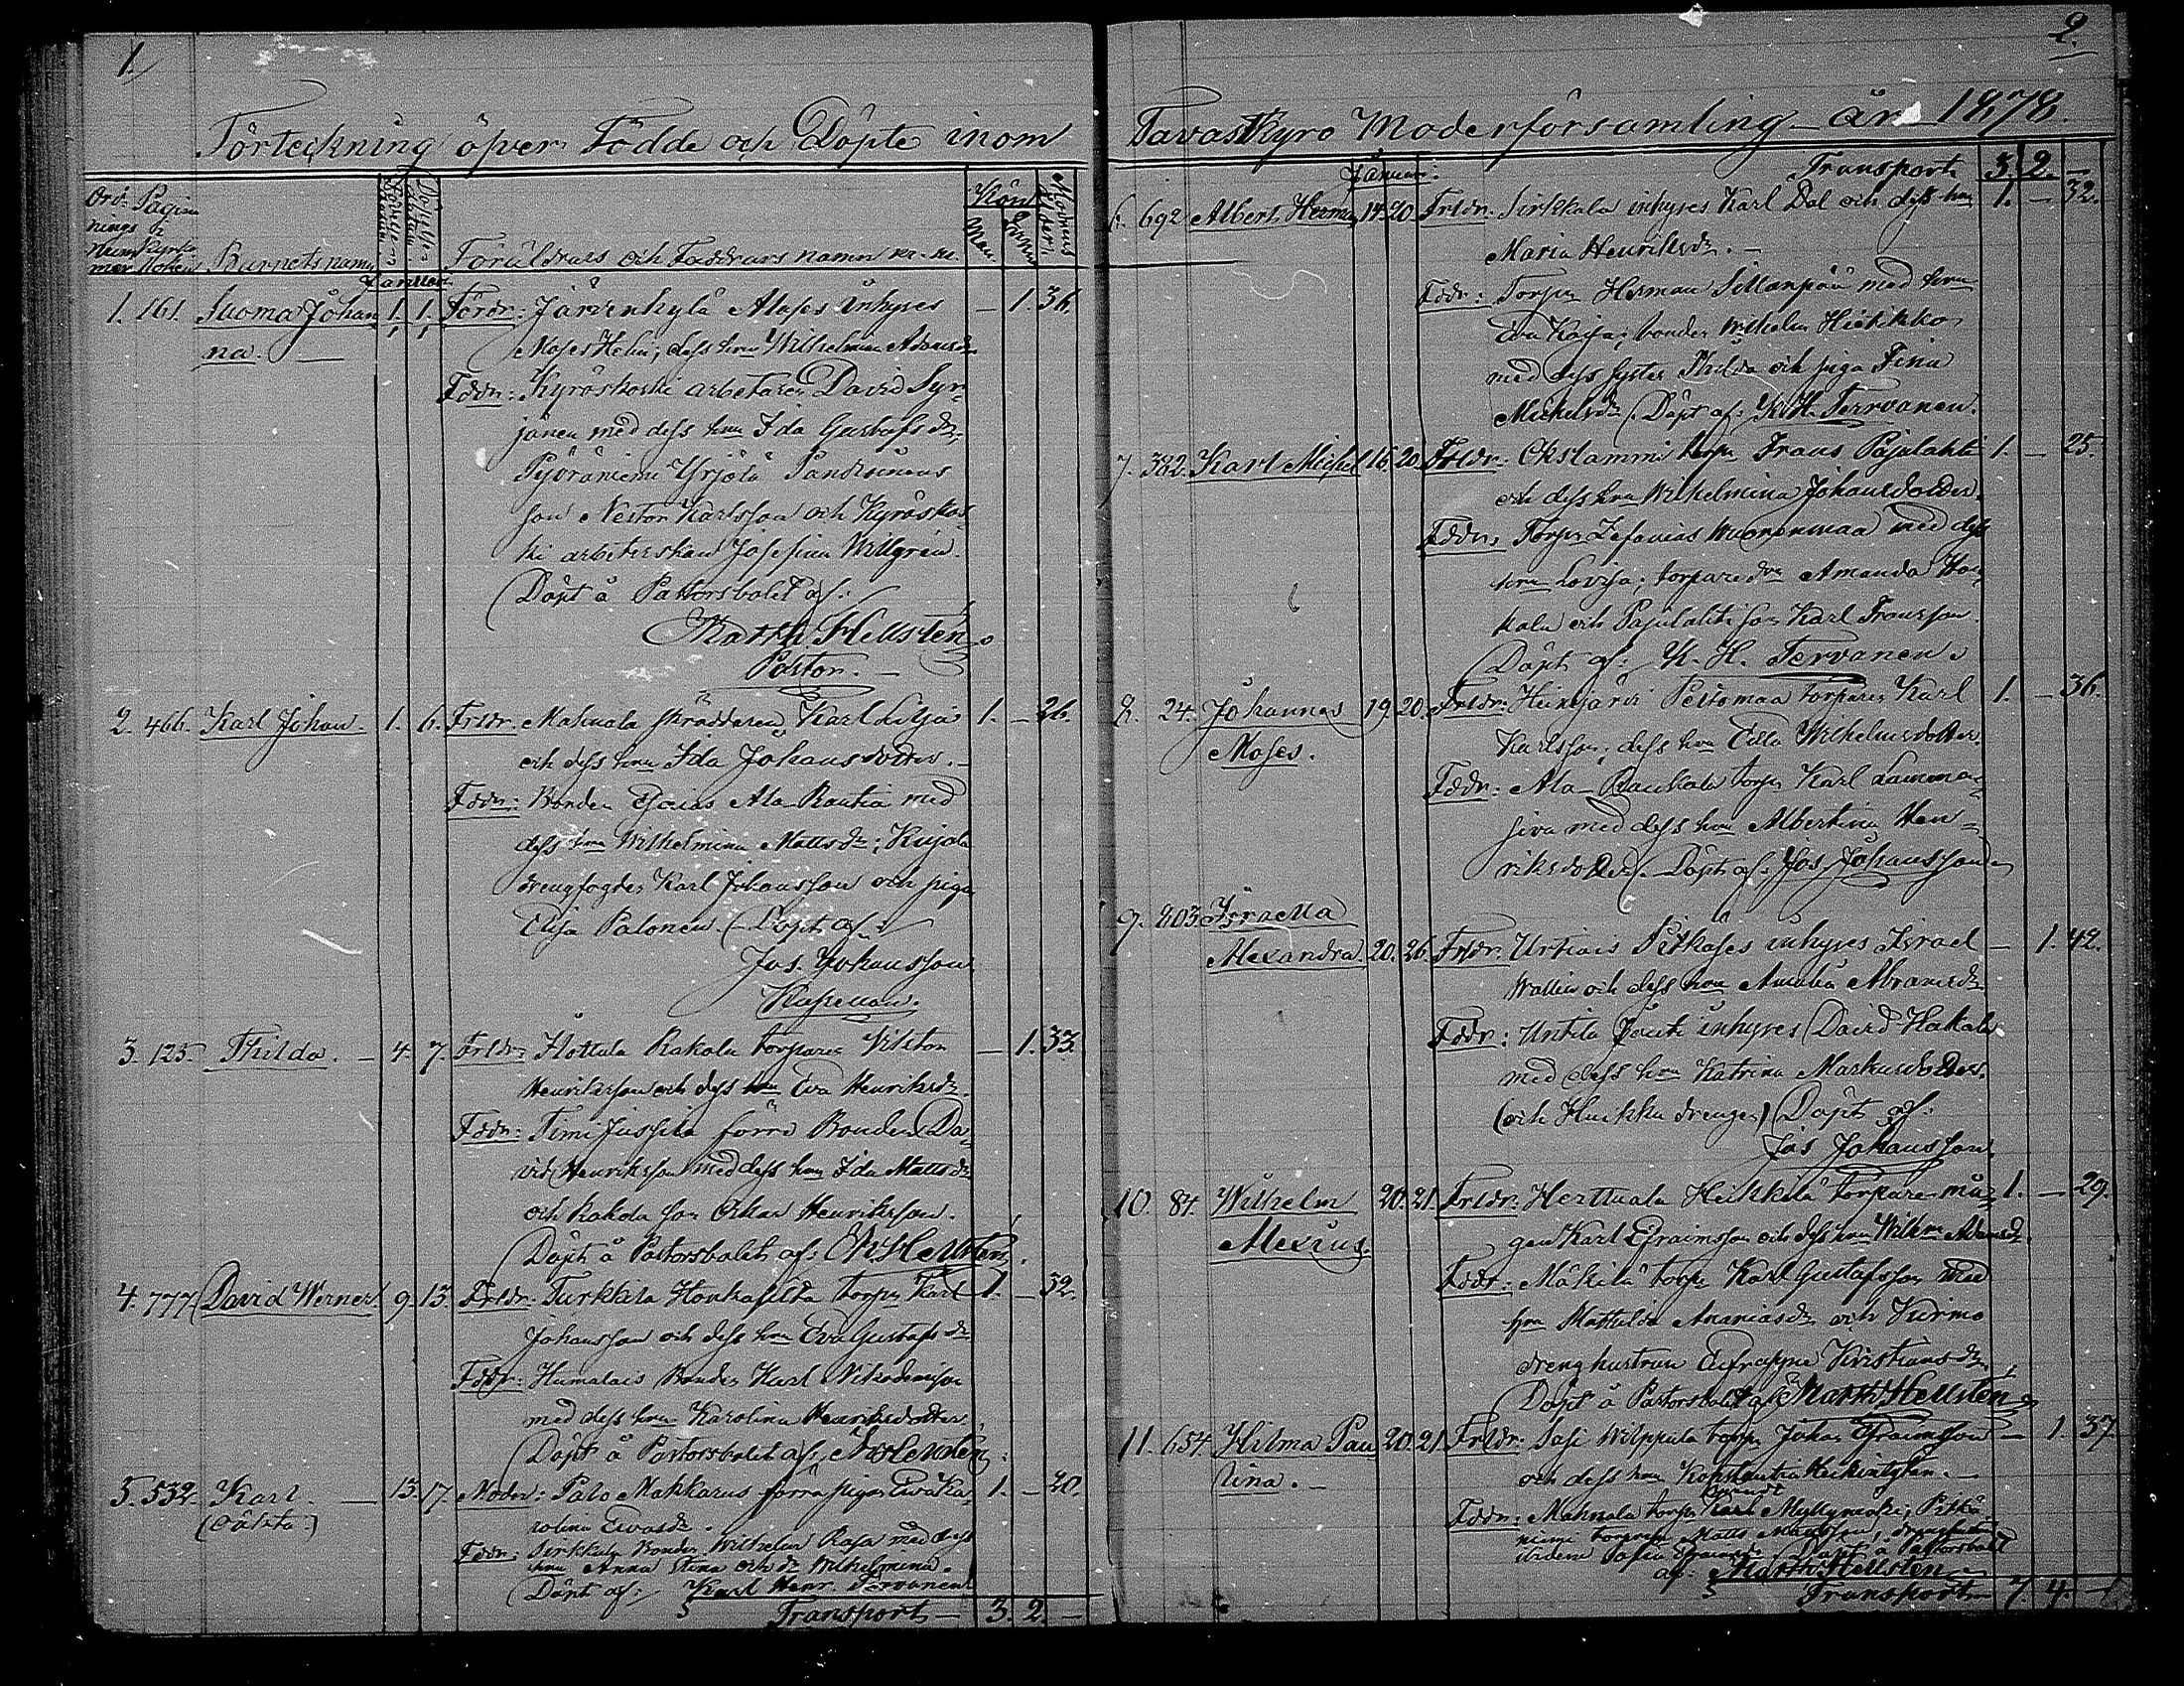 1.
Förteckning öfver Födde och Döpte inom
Ord- nings Num- mer
Pagina i Kyrko- boken
Barnets namn
Födelse-
Dop-
Föräldrars och Faddrars namn m. m.
Kön
Man
Qvinn
Moderns ålder.
Januari
1. 161. Suoma Johan 1. 1. Fördr: Järvenkylä Moses inhyses — 1. 36.
na. — Moses Helin, dess hru Wilhelmina Adamsdr
Fddr: Kyröskoski arbetaren David Syr-
jänen med dess hru Ida Gustafs dr
Yrjölä
son Nestor Karlsson och Kyröskos-
ki arbeterskan Josefina Willgrén.
Döpt å Pastorsbolet af:
Matth. Hellstén
Pastor.
2. 466. Karl Johan. 1. 6. Frldr: Mahnala skräddaren Karl Lilja 1. — 26.
och dess hru Ida Johansdotter.
Fddr: Bonden Esaias Ala-Rautia med
dess hru Wilhelmina Mattsdr; Kujala
drengfogden Karl Johansson och piga
Elisa Palonen. Döpt af:
Jos. Johansson
Kapellan.
3. 125. Thilda. — 4. 7. Frldr: Kakola torparen Viktor — 1. 33.
Henriksson och dess hru Eva Henriksdr.
Fddr: Timi Jussila förra Bonden Da-
vid Henriksson med dess hru Ida Mattsdr
och Kakola son Oskar Henriksson.
Döpt å Pastorsbolet af: M. Hellstén.
4. 777. David Werner. 9. 13. Frldr: Turkkila Honkasilta torpn Karl 1. — 32.
Johansson och dess hru Eva Gustafs dr
Fddr: Humalais Bonden Karl Nikodemsson
med dess hru Karolina Henriksdotter.
Döpt å Pastorsbolet af: M. Hellstén.
5. 532. Karl. — 13. 17. Moder: Palo Makkarus förra pigan Eva Ka- 1. — 20.
(oäkta) rolina Evasdr.
Fddr: Sirkkala Bonden Wilhelm Raja med dess
hru Anna Stina och dr Wilhelmina.
Döpt af: Karl Henr. Tervanen
Transport — 3. 2. —
2.
Tavastkyro Moderförsamling år 1878.
Januari. Transport. 3. 2. —
6. 692 Albert Herman 14. 20. Frldr: Sirkkala inhyses Karl Dal och dess hru 1. — 32.
Maria Henriksdr. —
Fddr: Torpn Herman Sillanpää med hru
Eva Kaisa; bonden Wilhelm Hietikko
med dess syster Thilda och piga Fina
Michelsdr. Döpt af: K. H. Tervanen.
7. 382. Karl Michel 16. 20. Frldr: torpn Frans Pajulahti 1. — 25.
och dess hru Wilhelmina Johansdotter.
Fddr: Torpn Zefanias Wuorenmaa med dess
hru Lovisa; torpare dr Amanda Ha-
kala och Pajulahti son Karl Fransson.
Döpt af: K. H. Tervanen.
8. 24. Johannes 19. 20. Frldr: Heinijärvi Peltomaa torparen Karl 1. — 36.
Moses. Karlsson; dess hru Edla Wilhelmsdotter.
Fddr: Ala-Raukala torpn Karl Lamma-
siva med dess hru Albertina Hen-
riksdotter. Döpt af: Jos Johansson
9. 803. Israella
Alexandra. 20. 26. Frldr: Urhiais Pitkäjes inhyses Israel — 1. 42.
Wallin och dess hru Amalia Abramsdr
Fddr: Untila Jouti inhyses David Hakala
med dess hru Katrina Markusdotter.
(och Huikka drengen) Döpt af:
Jos Johansson.
10. 84. Wilhelm 20. 21. Frldr: Herttuala Heikkilä torpare må- 1. — 29.
Alexius. gen Karl Efraimsson och dess hru Wilhna Adamsdr.
Fddr: Mäkilä torpn Karl Gustafsson med
hru Mathilda Ananiasdr och Kurmo
dreng hustrun Kristiansdr.
Döpt å Pastorsbolet af: Matth. Hellstén
11. 654. Hilma Pau 20. 21. Frldr: Sasi Wilppula torpn Johan Efraimsson — 1. 37.
lina. — och dess hru Konstantia
Fddr: Mahnala torpn Myllymäki; Pitkä-
niemi torparen Matts
Döpt å Pastorsbolet
af: Matth. Hellstén
Transport — 7. 4. —